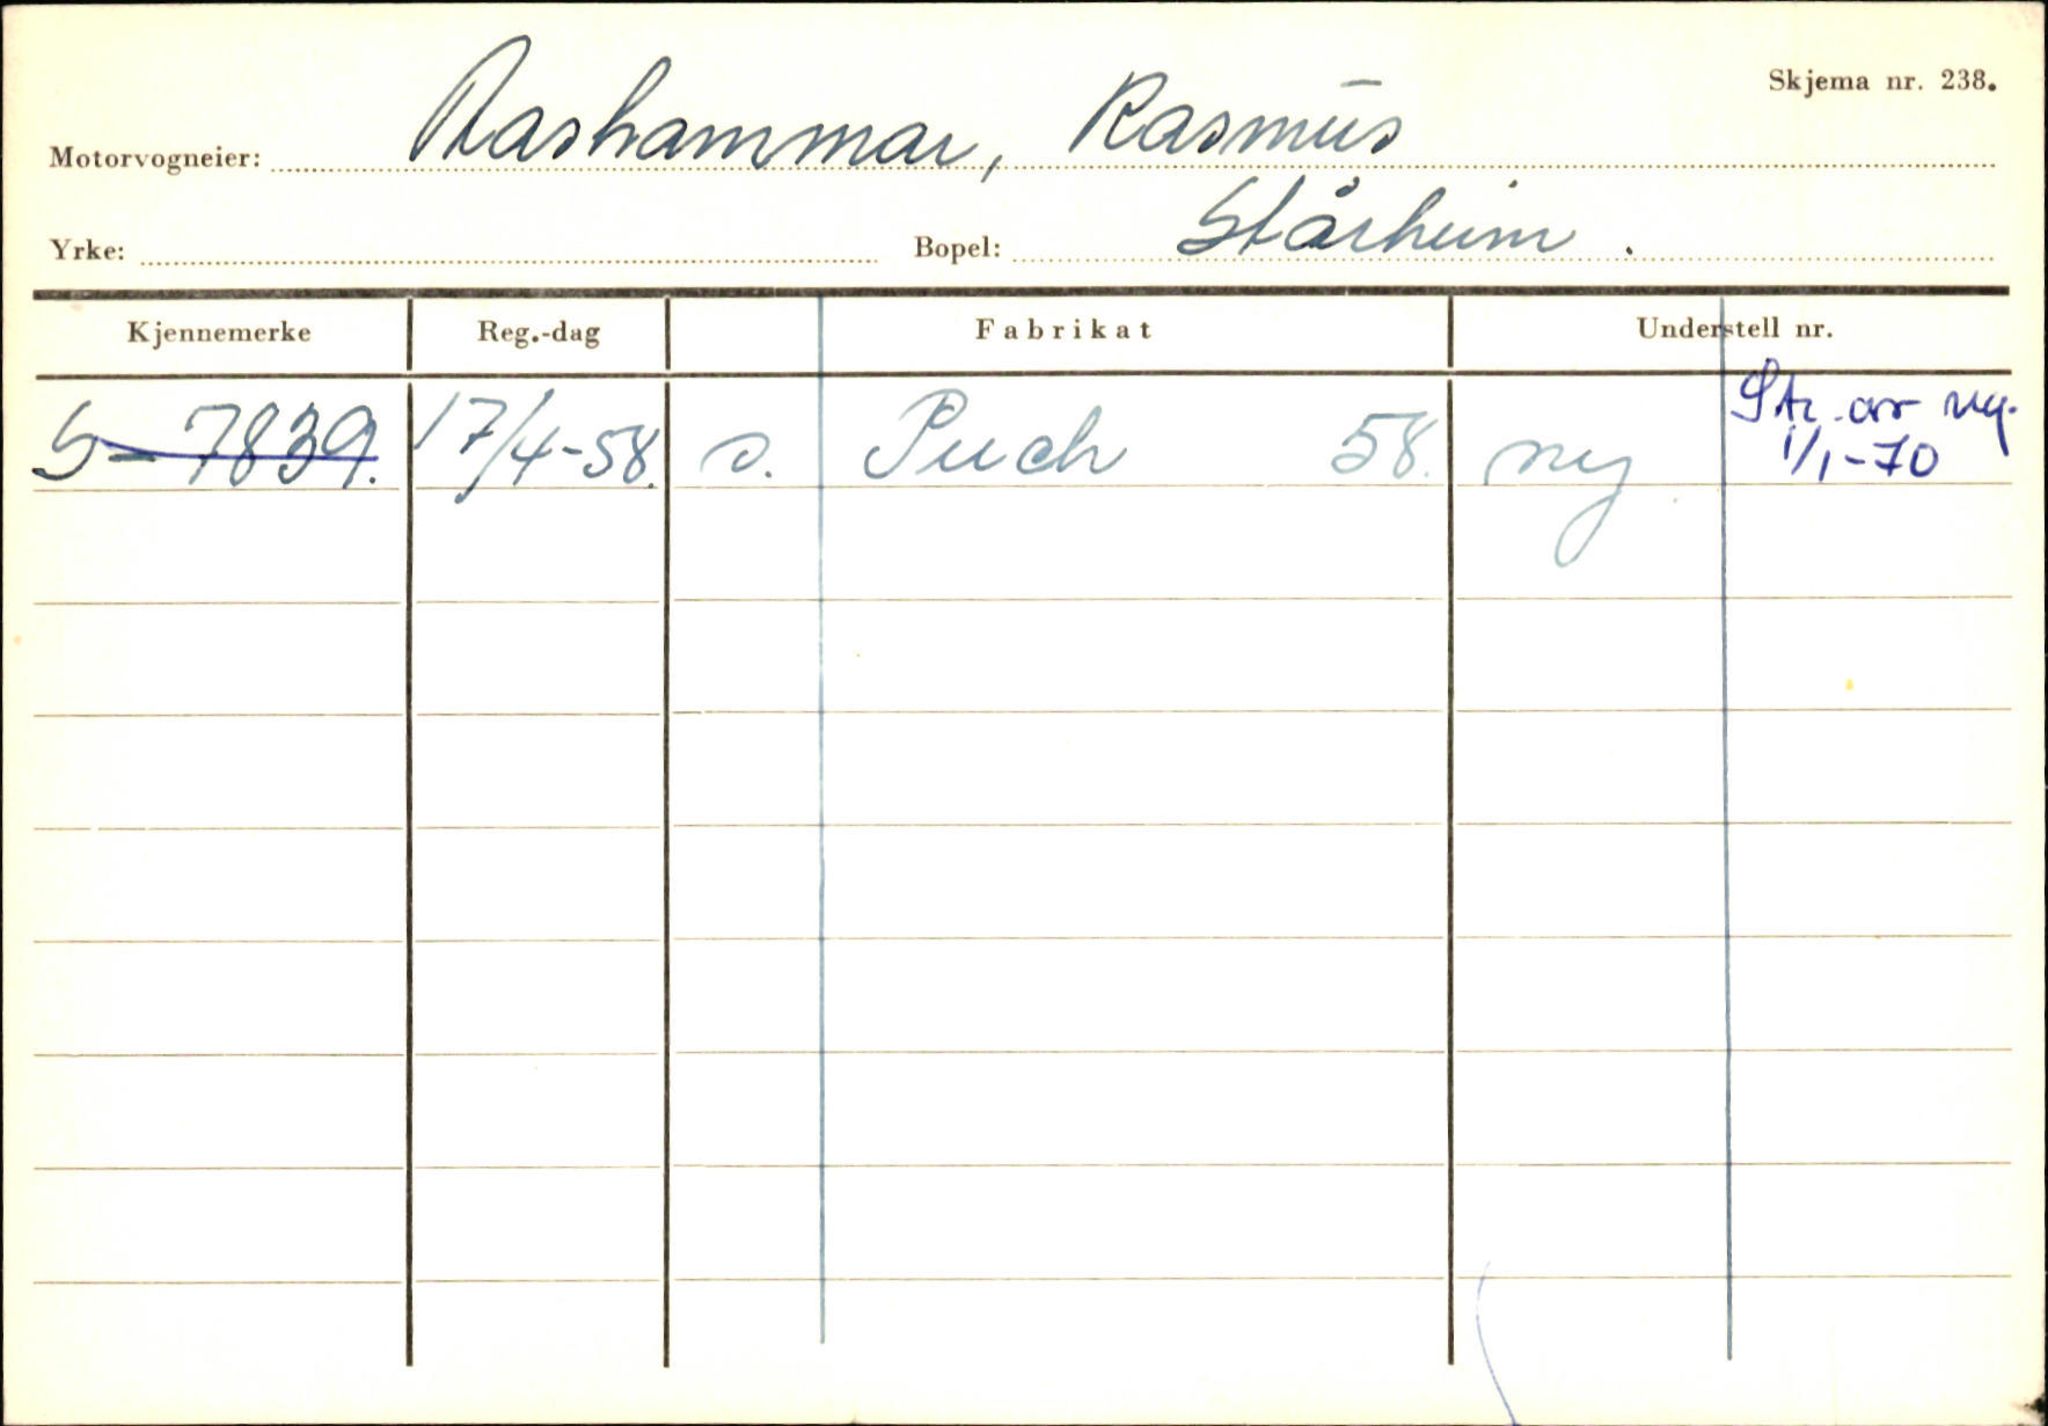 Skjema nr. 238.
Motorvogneier: Rashammar, Rasmus
Yrke: Bopel: Stårheim.
Kjennemerke Reg.-dag Fabrikat Understell nr.
S-7839. 17/4-58. s. Puch 58. ny Str. av reg. 1/1-70